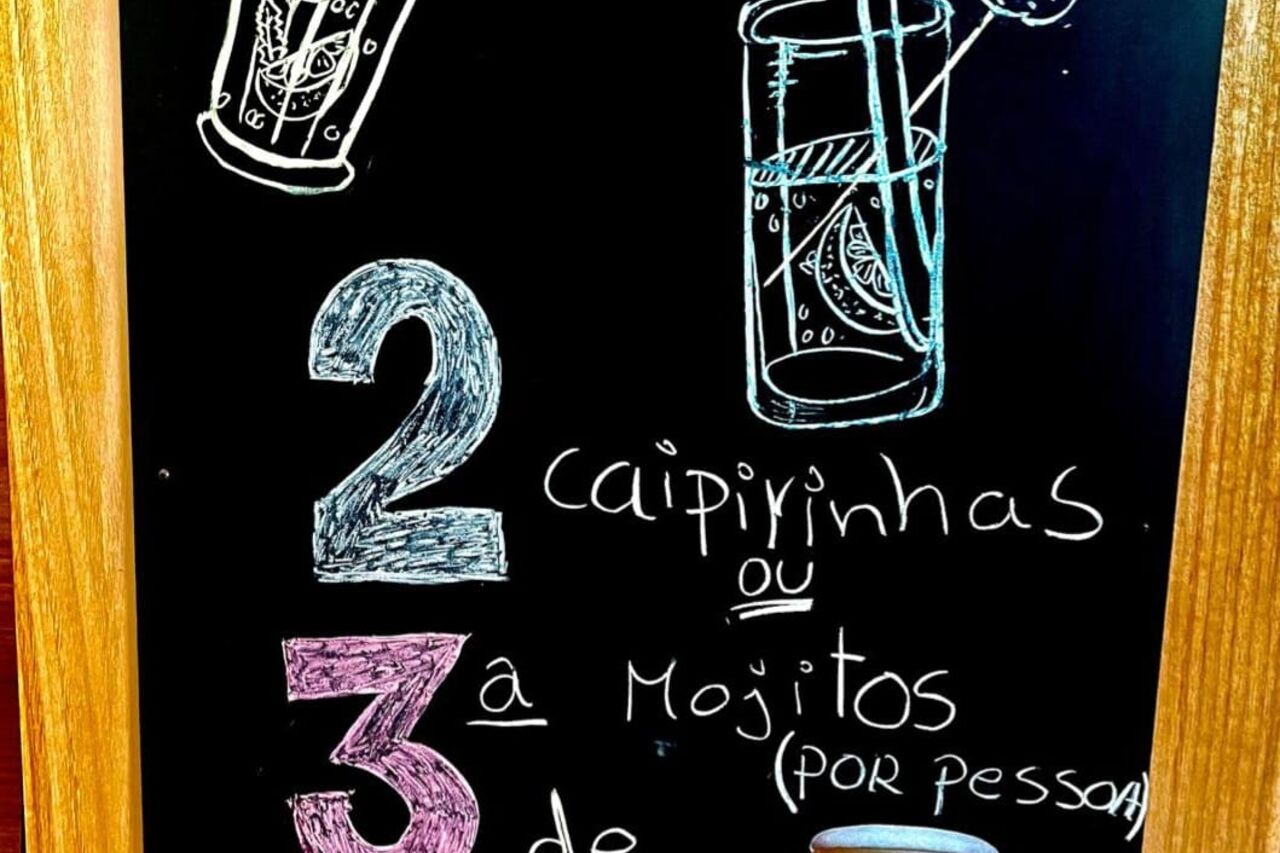 2 caipirinhas
ou
3ª Mojitos
(POR pessoA)
de